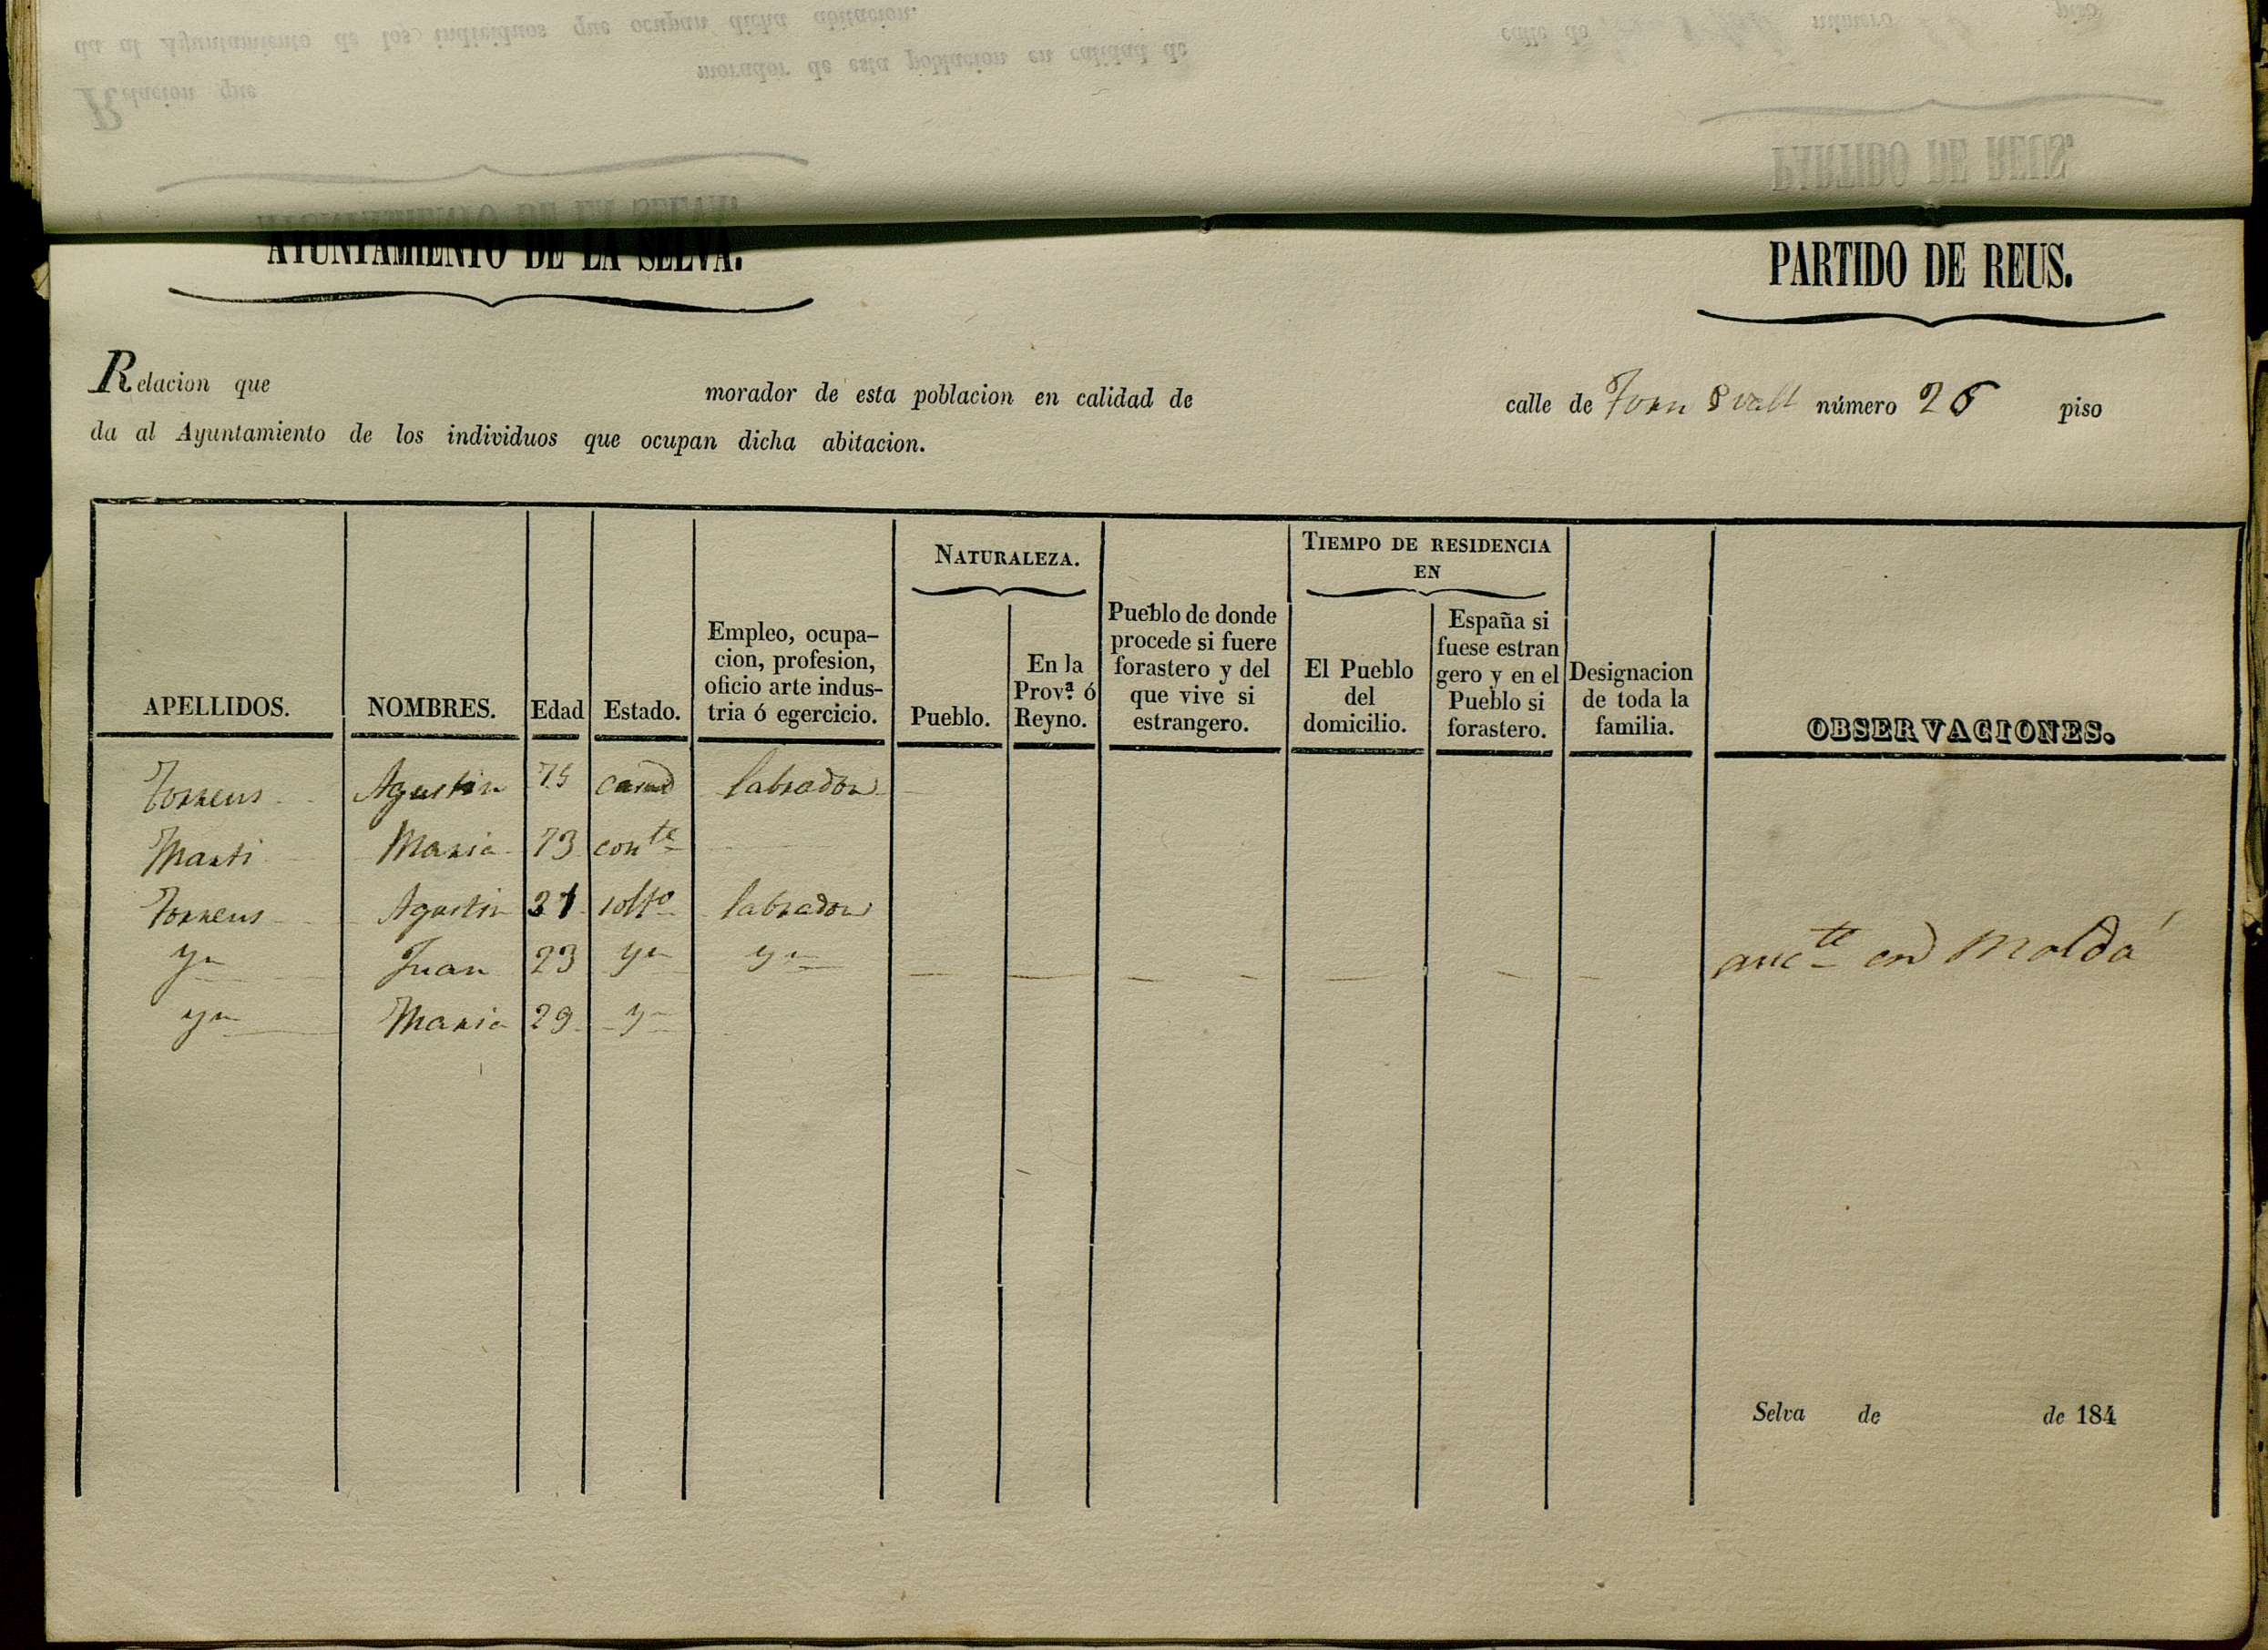 AYUNTAMIENTO DE LA SELVA.
PARTIDO DE REUS.
Relacion que morador de esta poblacion en calidad de calle de número 26 piso
da al Ayuntamiento de los individuos que ocupan dicha abitacion.
NATURALEZA.
TIEMPO DE RESIDENCIA EN
APELLIDOS.
NOMBRES.
Edad
Estado.
Empleo, ocupa-
cion, profesion,
oficio arte indus-
tria ó egercicio.
Pueblo.
En la
Prov.ª ó
Reyno.
Pueblo de donde
procede si fuere
forastero y del
que vive si
estrangero.
El Pueblo
del
domicilio.
España si
fuese estran
gero y en el
Pueblo si
forastero.
Designacion
de toda la
familia.
OBSERVACIONES.
Torrens Agustin 75 casad labrador
Marti Maria 73 conte
Torrens Agustin 31 solto labrador
Yn Juan 23 Yn Yn en Moldá
Yn Maria 29 Yn
Selva de de 184